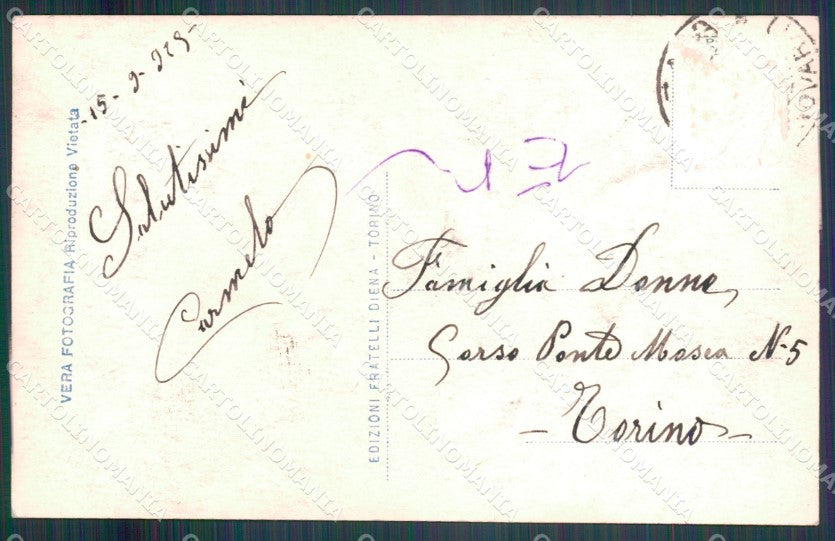 -15-2-929-
Salutissimi
Carmelo
VERA FOTOGRAFIA Riproduzione Vietata
EDIZIONI FRATELLI DIENA - TORINO
Famiglia Donna
Corso Ponte Mosca N-5
- Torino -
CARTOLINOMANIA